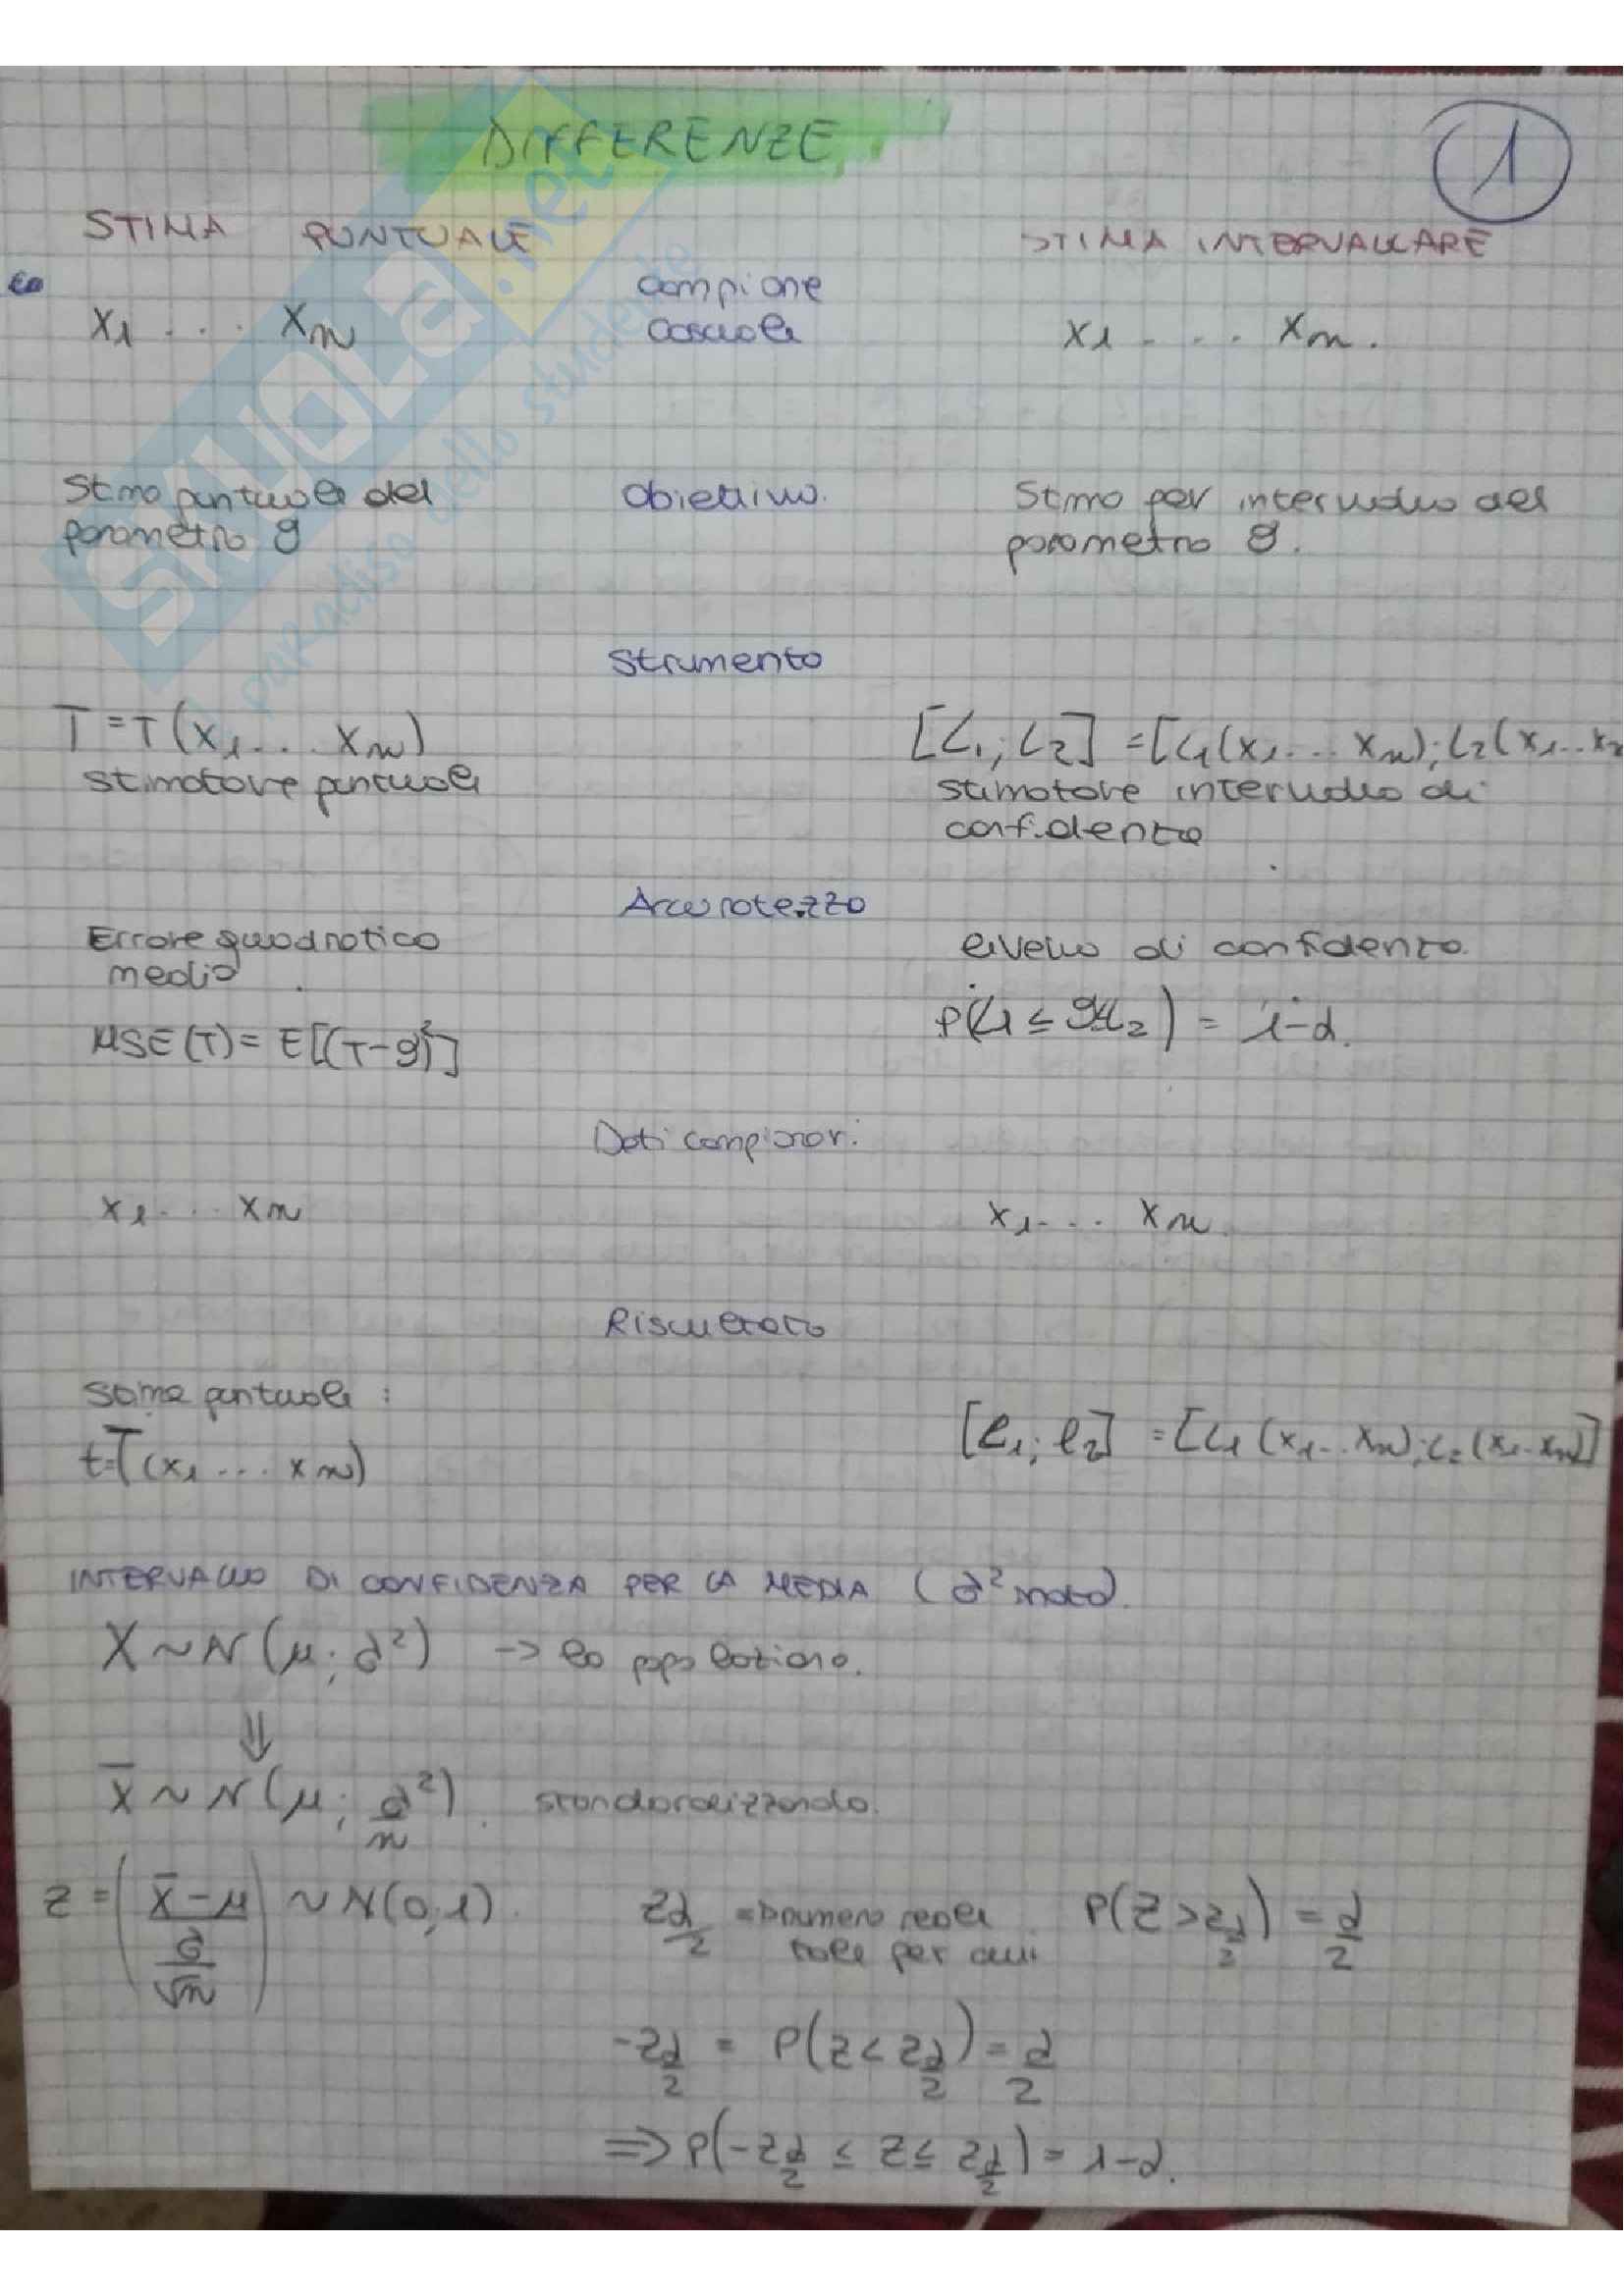 DIFFERENZE
1
STIMA PUNTUALE
STIMA INTERVALLARE
campione casuale
X1 ... Xn
X1 ... Xn.
Stima puntuale del parametro θ
Obiettivo.
Stima per intervallo del parametro θ.
Strumento
T = T(X1 ... Xn)
stimatore puntuale
[L1; L2] = [L1(X1 ... Xn); L2(X1 ... Xn
stimatore intervallo di confidenza
Accuratezza
Errore quadratico medio.
livello di confidenza.
MSE(T) = E[(T-θ)²]
P(L1 ≤ θ ≤ L2) = 1-α.
Dati campionari
x1 ... xn
x1 ... xn.
Risultato
stima puntuale:
t=T(x1 ... xn)
[l1; l2] = [L1(x1 ... xn); L2(x1 - xn)]
INTERVALLO DI CONFIDENZA PER LA MEDIA (σ² nota).
X ~ N(μ; σ²) -> la popolazione.
⇓
X̄ ~ N(μ; σ²/n). standardizzando.
Z = (X̄ - μ / σ/√n) ~ N(0;1).
zα/2 = numero reale tale per cui P(Z > zα/2) = α/2
-zα/2 = P(Z < zα/2) = α/2
=> P(-zα/2 ≤ Z ≤ zα/2) = 1-α.
SKUOLA.net
il paradiso dello studente